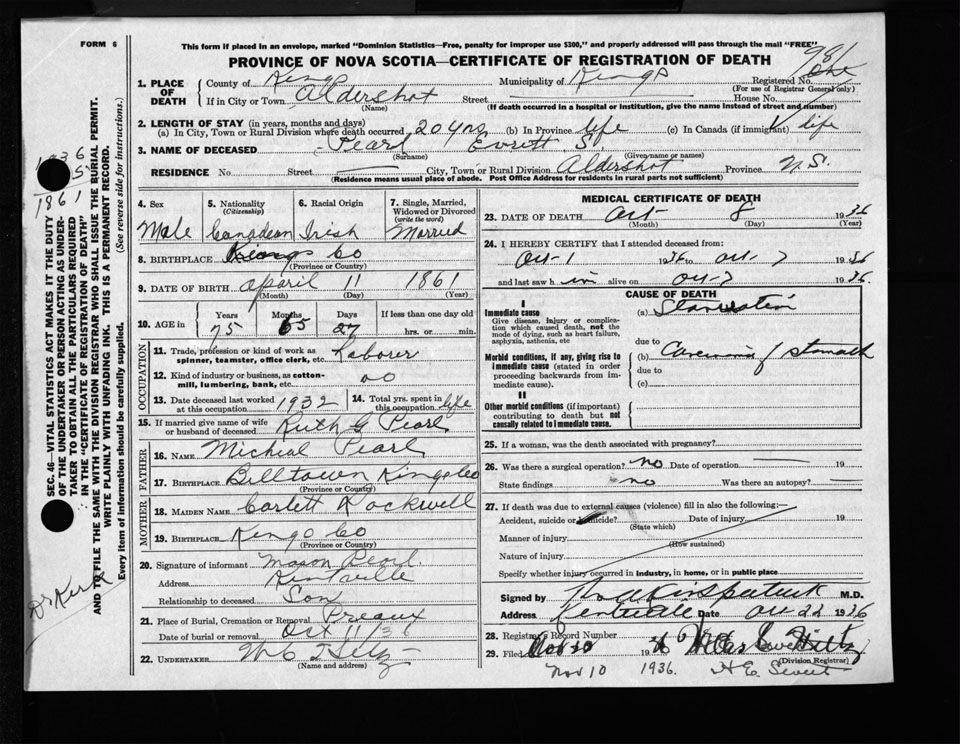 FORM 6
This form if placed in an envelope, marked "Dominion Statistics—Free, penalty for improper use $300," and properly addressed will pass through the mail "FREE"
PROVINCE OF NOVA SCOTIA—CERTIFICATE OF REGISTRATION OF DEATH
981
1. PLACE OF DEATH County of Kings Municipality of Kings Registered No.
(For use of Registrar General only)
If in City or Town Aldershot Street House No.
(Name) (If death occurred in a hospital or institution, give the name instead of street and number)
2. LENGTH OF STAY (in years, months and days)
(a) In City, Town or Rural Division where death occurred 20 yrs (b) In Province life (c) In Canada (if immigrant) life
3. NAME OF DECEASED Pearl Everett S.
(Surname) (Given name or names)
RESIDENCE No. Street City, Town or Rural Division Aldershot Province N.S.
(Residence means usual place of abode. Post Office Address for residents in rural parts not sufficient)
4. Sex 5. Nationality (Citizenship) 6. Racial Origin 7. Single, Married, Widowed or Divorced (write the word)
Male Canadian Irish Married
8. BIRTHPLACE Kings Co
(Province or Country)
9. DATE OF BIRTH April 11 1861
(Month) (Day) (Year)
10. AGE in Years Months Days If less than one day old
75 5 27 hrs. or min.
OCCUPATION
11. Trade, profession or kind of work as spinner, teamster, office clerk, etc. Laborer
12. Kind of industry or business, as cotton-mill, lumbering, bank, etc. do
13. Date deceased last worked at this occupation 1932 14. Total yrs. spent in this occupation life
15. If married give name of wife or husband of deceased Ruth G Pearl
FATHER
16. NAME Micheal Pearl
17. BIRTHPLACE Billtown Kings Co
(Province or Country)
MOTHER
18. MAIDEN NAME Rockwell
19. BIRTHPLACE Kings Co
(Province or Country)
20. Signature of informant Mason Pearl
Address Kentville
Relationship to deceased Son
21. Place of Burial, Cremation or Removal
Date of burial or removal Oct 11/36
22. UNDERTAKER W C Hiltz
(Name and address)
MEDICAL CERTIFICATE OF DEATH
23. DATE OF DEATH Oct 8 1936
(Month) (Day) (Year)
24. I HEREBY CERTIFY that I attended deceased from:
Oct 1 1936 to Oct 7 1936
and last saw h im alive on Oct 7 1936.
CAUSE OF DEATH
I
Immediate cause
Give disease, injury or complication which caused death, not the mode of dying, such as heart failure, asphyxia, asthenia, etc
(a) Starvation
due to
Morbid conditions, if any, giving rise to immediate cause (stated in order proceeding backwards from immediate cause).
(b) Carcinoma of stomach
due to
(c)
II
Other morbid conditions (if important) contributing to death but not causally related to immediate cause.
25. If a woman, was the death associated with pregnancy?
26. Was there a surgical operation? no Date of operation 19
State findings no Was there an autopsy?
27. If death was due to external causes (violence) fill in also the following:—
Accident, suicide or homicide? Date of injury 19
(State which)
Manner of injury
(How sustained)
Nature of injury
Specify whether injury occurred in industry, in home, or in public place
Signed by Kirkpatrick M.D.
Address Kentville Date Oct 22 1936
28. Registrar's Record Number
29. Filed Nov 10 19
(Division Registrar)
Nov 10 1936.
SEC. 46—VITAL STATISTICS ACT MAKES IT THE DUTY OF THE UNDERTAKER OR PERSON ACTING AS UNDERTAKER TO OBTAIN ALL THE PARTICULARS REQUIRED IN THE "CERTIFICATE OF REGISTRATION OF DEATH" AND TO FILE THE SAME WITH THE DIVISION REGISTRAR WHO SHALL ISSUE THE BURIAL PERMIT.
WRITE PLAINLY WITH UNFADING INK. THIS IS A PERMANENT RECORD.
Every item of information should be carefully supplied. (See reverse side for instructions.)
1936
75
1861